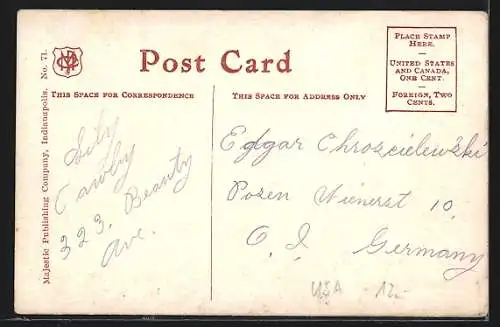 Majestic Publishing Company, Indianapolis. No. 71.
Post Card
PLACE STAMP
HERE.
UNITED STATES
AND CANADA,
ONE CENT.
FOREIGN, TWO
CENTS.
THIS SPACE FOR CORRESPONDENCE
THIS SPACE FOR ADDRESS ONLY
323. Beauty
Ave.
Edgar Chroscielewski
Posen Wienerst 10.
Germany
USA 12.-